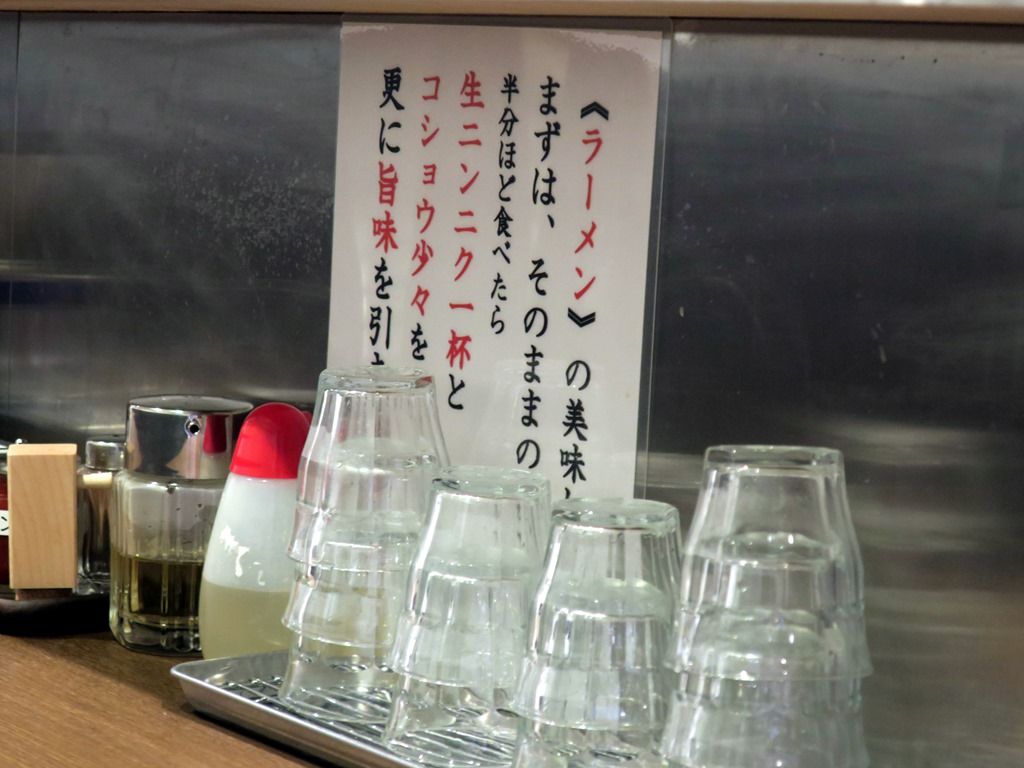 《ラーメン》の美味
まずは、そのままの
半分ほど食べたら
生ニンニク一杯と
コショウ少々を
更に旨味を引
ン